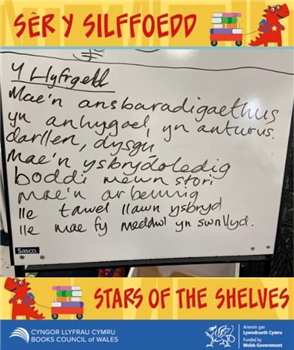 SÊR Y SILFFOEDD
Y Llyfrgell
Mae'n ansbaradigaethus
yn anhygoel, yn anturus.
darllen, dysgu
Mae'n ysbrydoledig
boddi mewn stori
mae'n arbennig
lle tawel llawn ysbryd
lle mae fy meddwl yn swnllyd.
Sasco
STARS OF THE SHELVES
CYNGOR LLYFRAU CYMRU
BOOKS COUNCIL of WALES
Ariennir gan
Lywodraeth Cymru
Funded by
Welsh Government